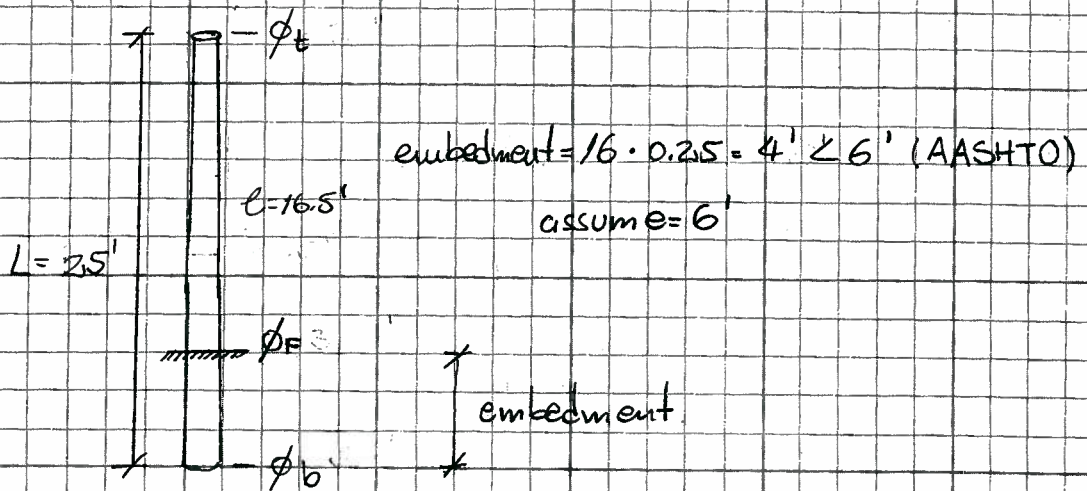 ϕt
embedment = 16 · 0.25 = 4' < 6' (AASHTO)
l=16.5'
assume e= 6'
L= 25'
ϕF
embedment
ϕb